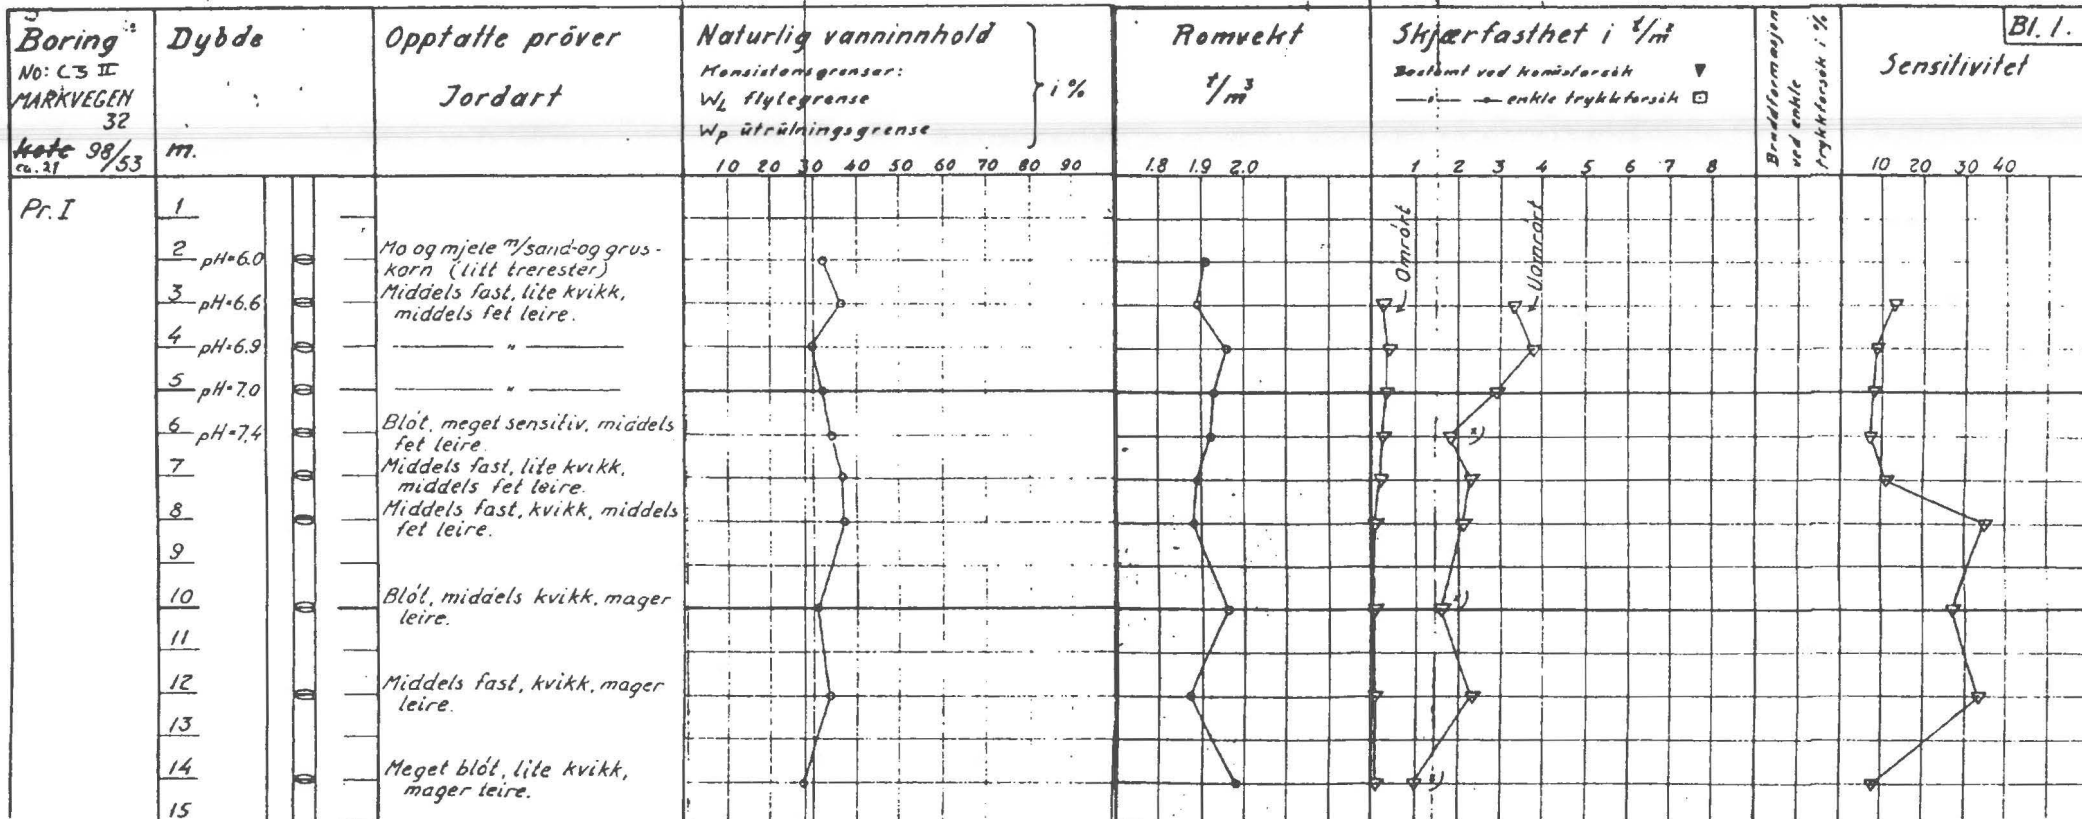 Boring
No: C3 II
MARKVEGEN
32
Kote 98/53
ca. 21
Dybde
m.
Opptatte pröver
Jordart
Naturlig vanninnhold
Konsistensgrenser:
WL flytegrense
Wp utrulningsgrense
i %
10 20 30 40 50 60 70 80 90
Romvekt
t/m³
1.8 1.9 2.0
Skjærfasthet i t/m²
Bestemt ved konusforsök
—"— —"— enkle trykkforsök
1 2 3 4 5 6 7 8
Bruddformasjon
ved enkle
trykkforsök i %
Bl. 1.
Sensitivitet
10 20 30 40
Pr. I
1
2 pH=6.0 Mo og mjele m/sand-og grus-
korn (litt trerester)
3 pH=6.6 Middels fast, lite kvikk,
middels fet leire.
4 pH=6.9 — " —
5 pH=7.0 — " —
6 pH=7.4 Blöt, meget sensitiv, middels
fet leire.
7 Middels fast, lite kvikk,
middels fet leire.
8 Middels fast, kvikk, middels
fet leire.
9
10 Blöt, middels kvikk, mager
leire.
11
12 Middels fast, kvikk, mager
leire.
13
14 Meget blöt, lite kvikk,
mager leire.
15
Omrört
Uomrört
x)
x)
x)